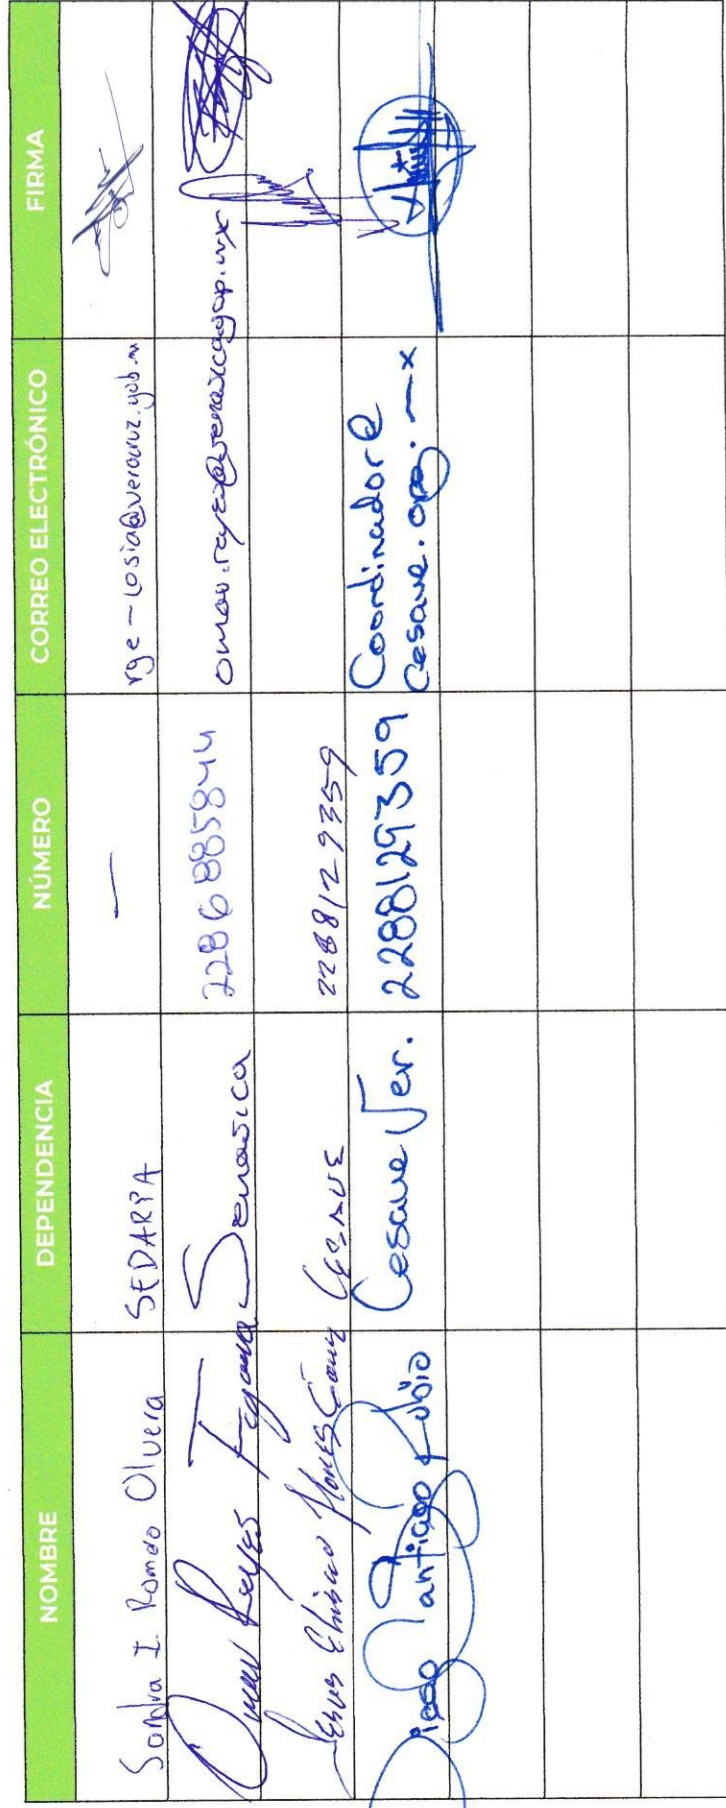 NOMBRE DEPENDENCIA NÚMERO CORREO ELECTRÓNICO FIRMA
Sandra I. Romero Olvera SEDARPA — rge-cosia@veracruz.gob.m
Omar Reyes Tejeda Senasica 2286885844 omar.reyes@senasica.gob.mx
Jesus Flores CESAVE 2288129359
Diego Santiago Rubio Cesave Ver. 2288129359 Coordinador@
Cesave.org.mx